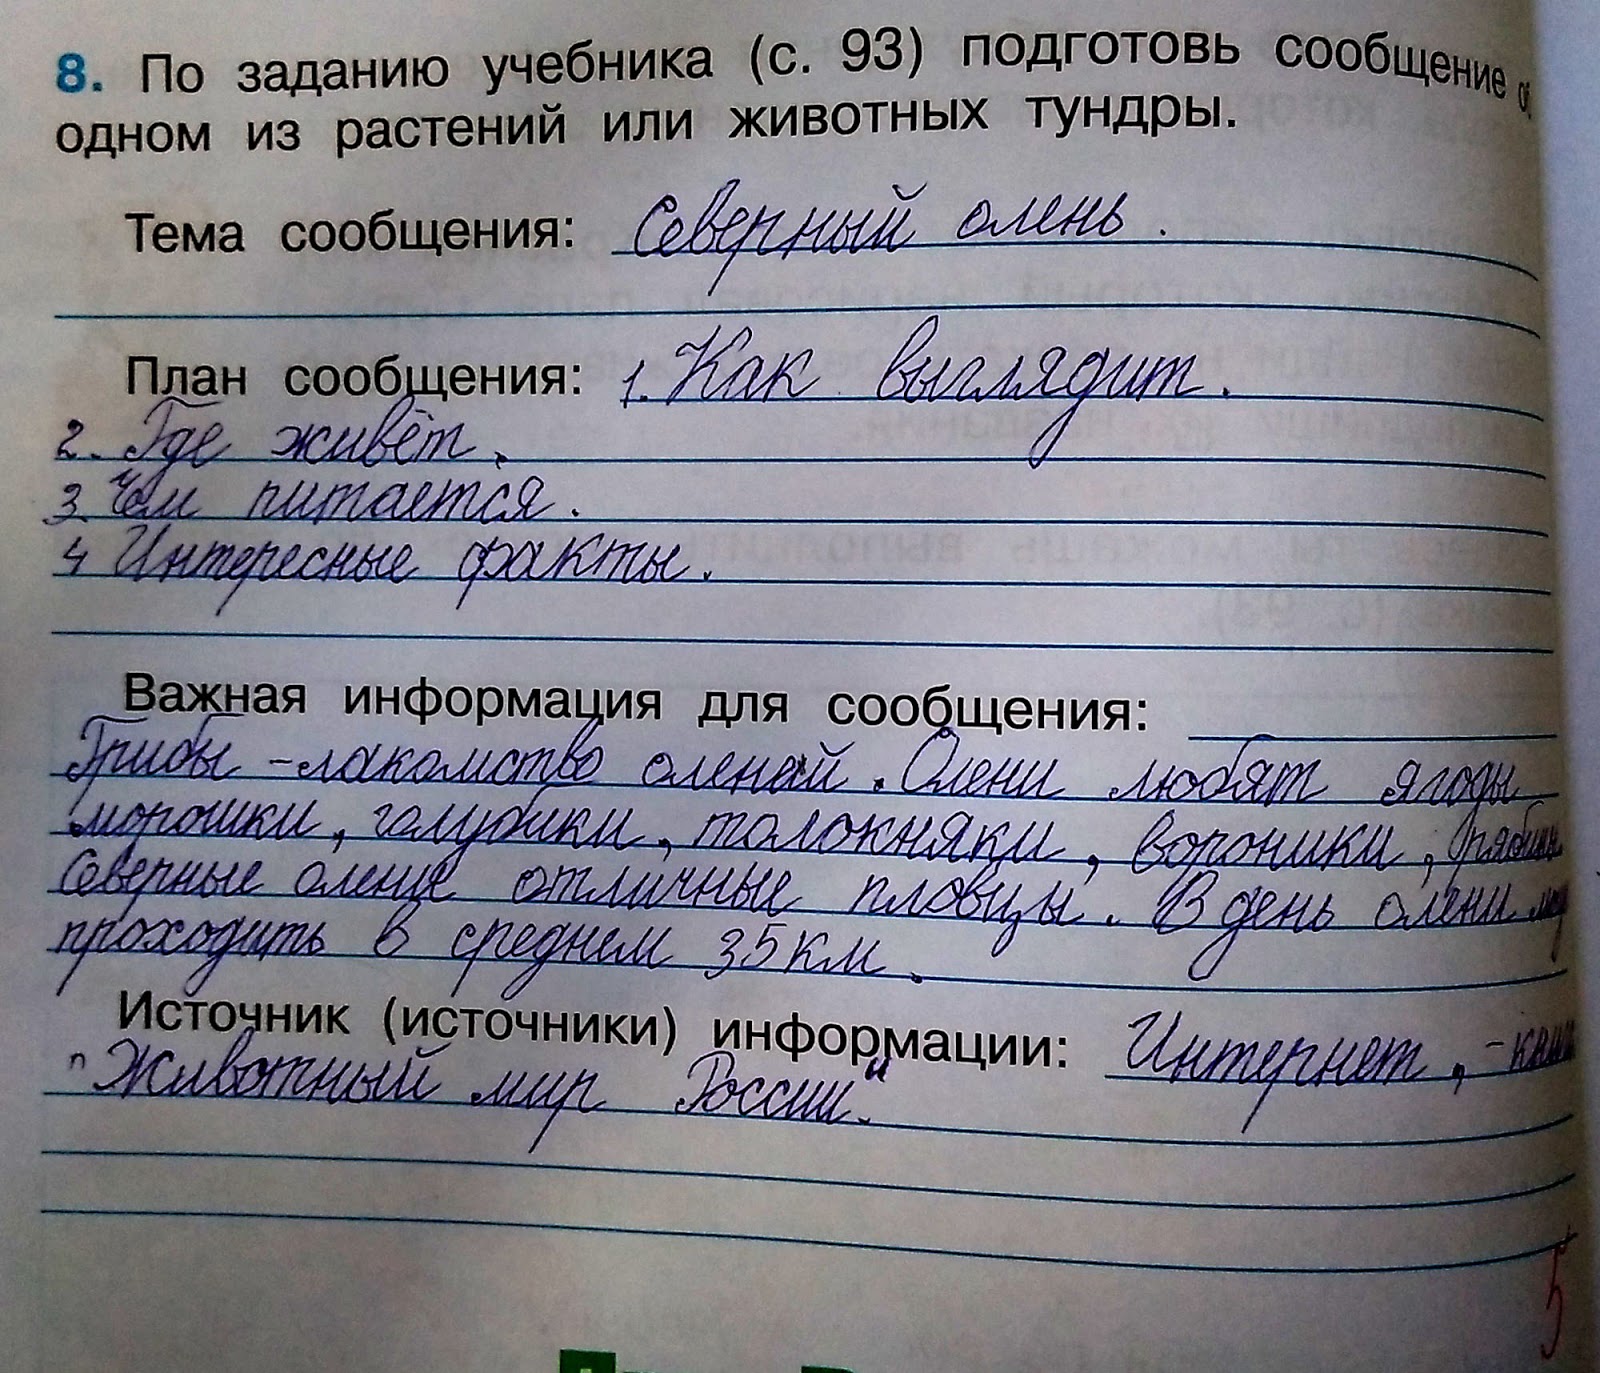 8. По заданию учебника (с. 93) подготовь сообщение об
одном из растений или животных тундры.
Тема сообщения: Северный олень.
План сообщения: 1. Как выглядит.
2. Где живёт.
3. Чем питается.
4 Интересные факты.
Важная информация для сообщения:
Грибы - лакомство оленей. Олени любят ягоды
морошки, голубики, толокняки, вороники,
Северные олени отличные пловцы. В день олени
проходить в среднем 35 км.
Источник (источники) информации: Интернет, -
"Животный мир России."
5